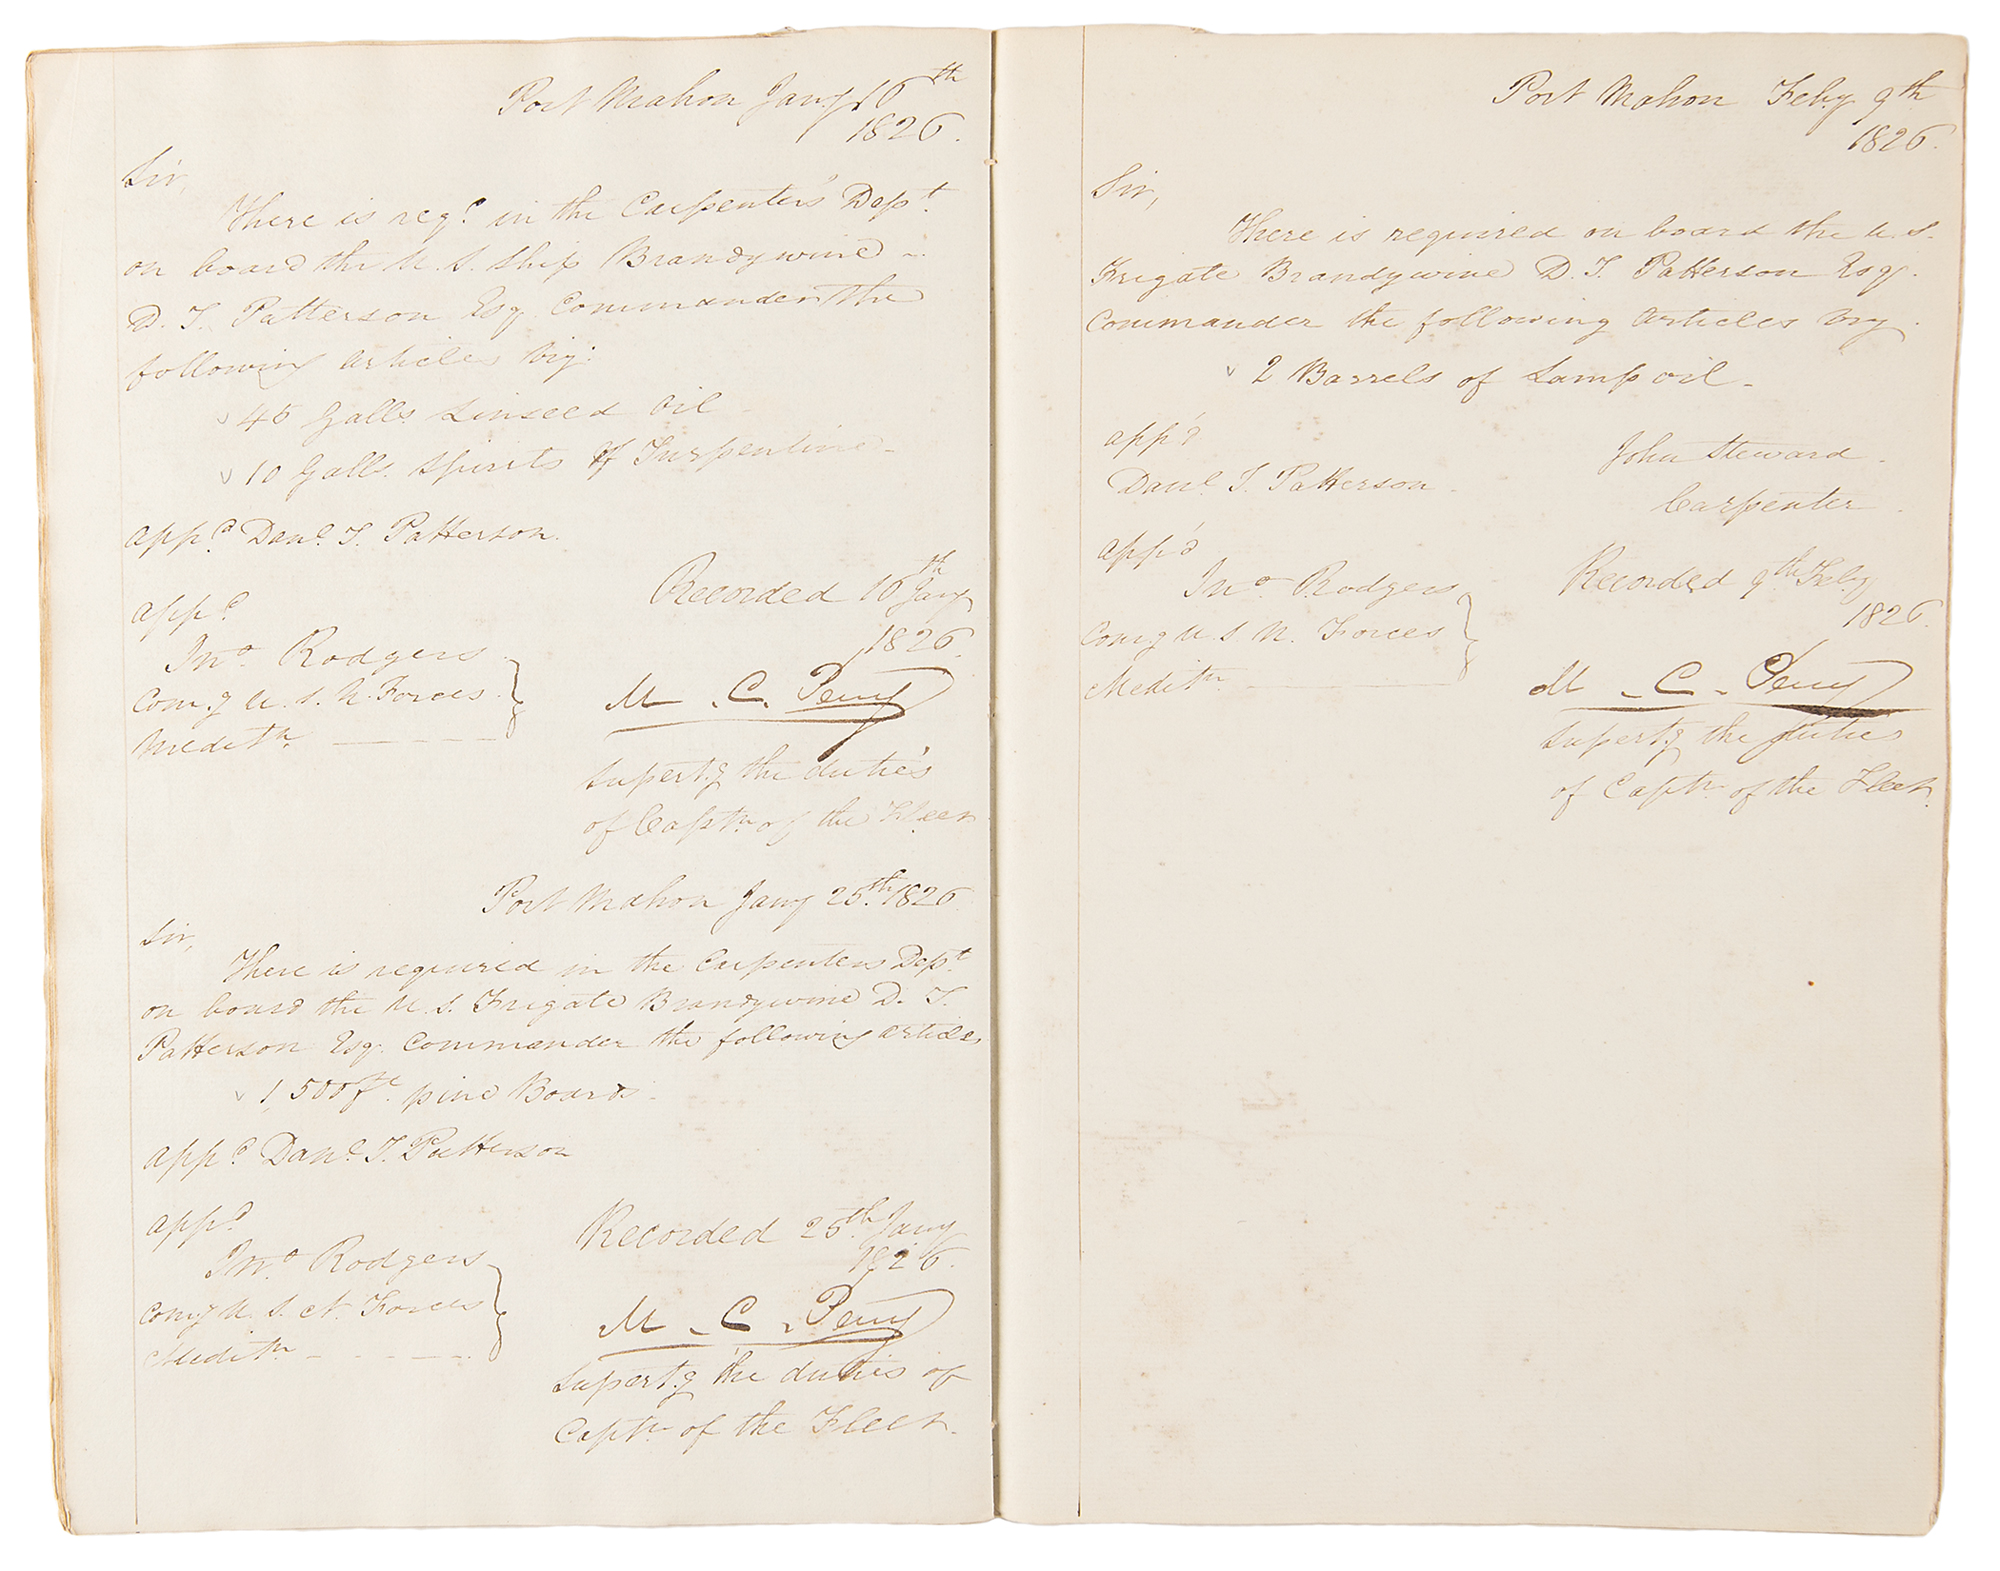 Port Mahon Jany 16th
1826.
Sir,
There is reqd. in the Carpenter's Dept.
on board the U. S. Ship Brandywine
D. T. Patterson Esq. Commander the
following articles Viz:
45 Galls. Linseed Oil
10 Galls. Spirits of Turpentine
appd. Danl. T. Patterson.
appd.
Jno. Rodgers
Comg U. S. N. Forces
Meditn.
Recorded 16th Jany
1826.
M. C. Perry
Supertg the duties
of Captn. of the Fleet
Port Mahon Jany 25th. 1826
Sir,
There is required in the Carpenters Dept.
on board the U. S. Frigate Brandywine D. T.
Patterson Esq. Commander the following articles
1,500 ft. pine Boards.
appd. Danl. T. Patterson
appd.
Jno. Rodgers
Comg U. S. N. Forces
Meditn.
Recorded 25th. Jany
1826.
M. C. Perry
Supertg the duties of
Captn. of the Fleet.
Port Mahon Feby 9th
1826.
Sir,
There is required on board the U. S.
Frigate Brandywine D. T. Patterson Esq.
Commander the following articles Viz
2 Barrels of Lamp oil.
app'd
Danl. T. Patterson
John Steward
Carpenter
app'd
Jno. Rodgers
Comg U. S. N. Forces
Meditn.
Recorded 9th Feby
1826.
M. C. Perry
Supertg the duties
of Captn. of the Fleet.